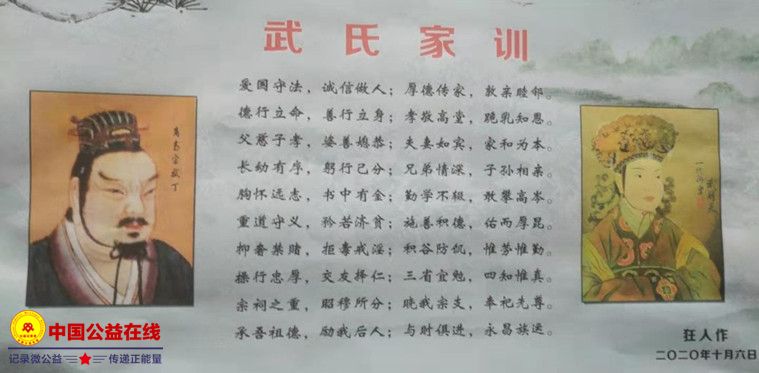 武氏家训
爱国守法，诚信做人；厚德传家，敦亲睦邻。
德行立命，善行立身；孝敬高堂，跪乳知恩。
父慈子孝，婆善媳恭；夫妻如宾，家和为本。
长幼有序，躬行己分；兄弟情深，子孙相亲。
胸怀远志，书中有金；勤学不辍，敢攀高岑。
重道守义，矜苦济贫；施善积德，佑而厚昆。
抑奢禁赌，拒毒戒淫；积谷防饥，惟劳惟勤。
操行忠厚，交友择仁；三省宜勉，四知惟真。
宗祠之重，昭穆所分；晓我宗支，奉祀先尊。
承吾祖德，励我后人；与时俱进，永昌族运。
狂人作
二〇二〇年十月六日
商高宗武丁
武则天
中国公益在线
记录微公益 传递正能量